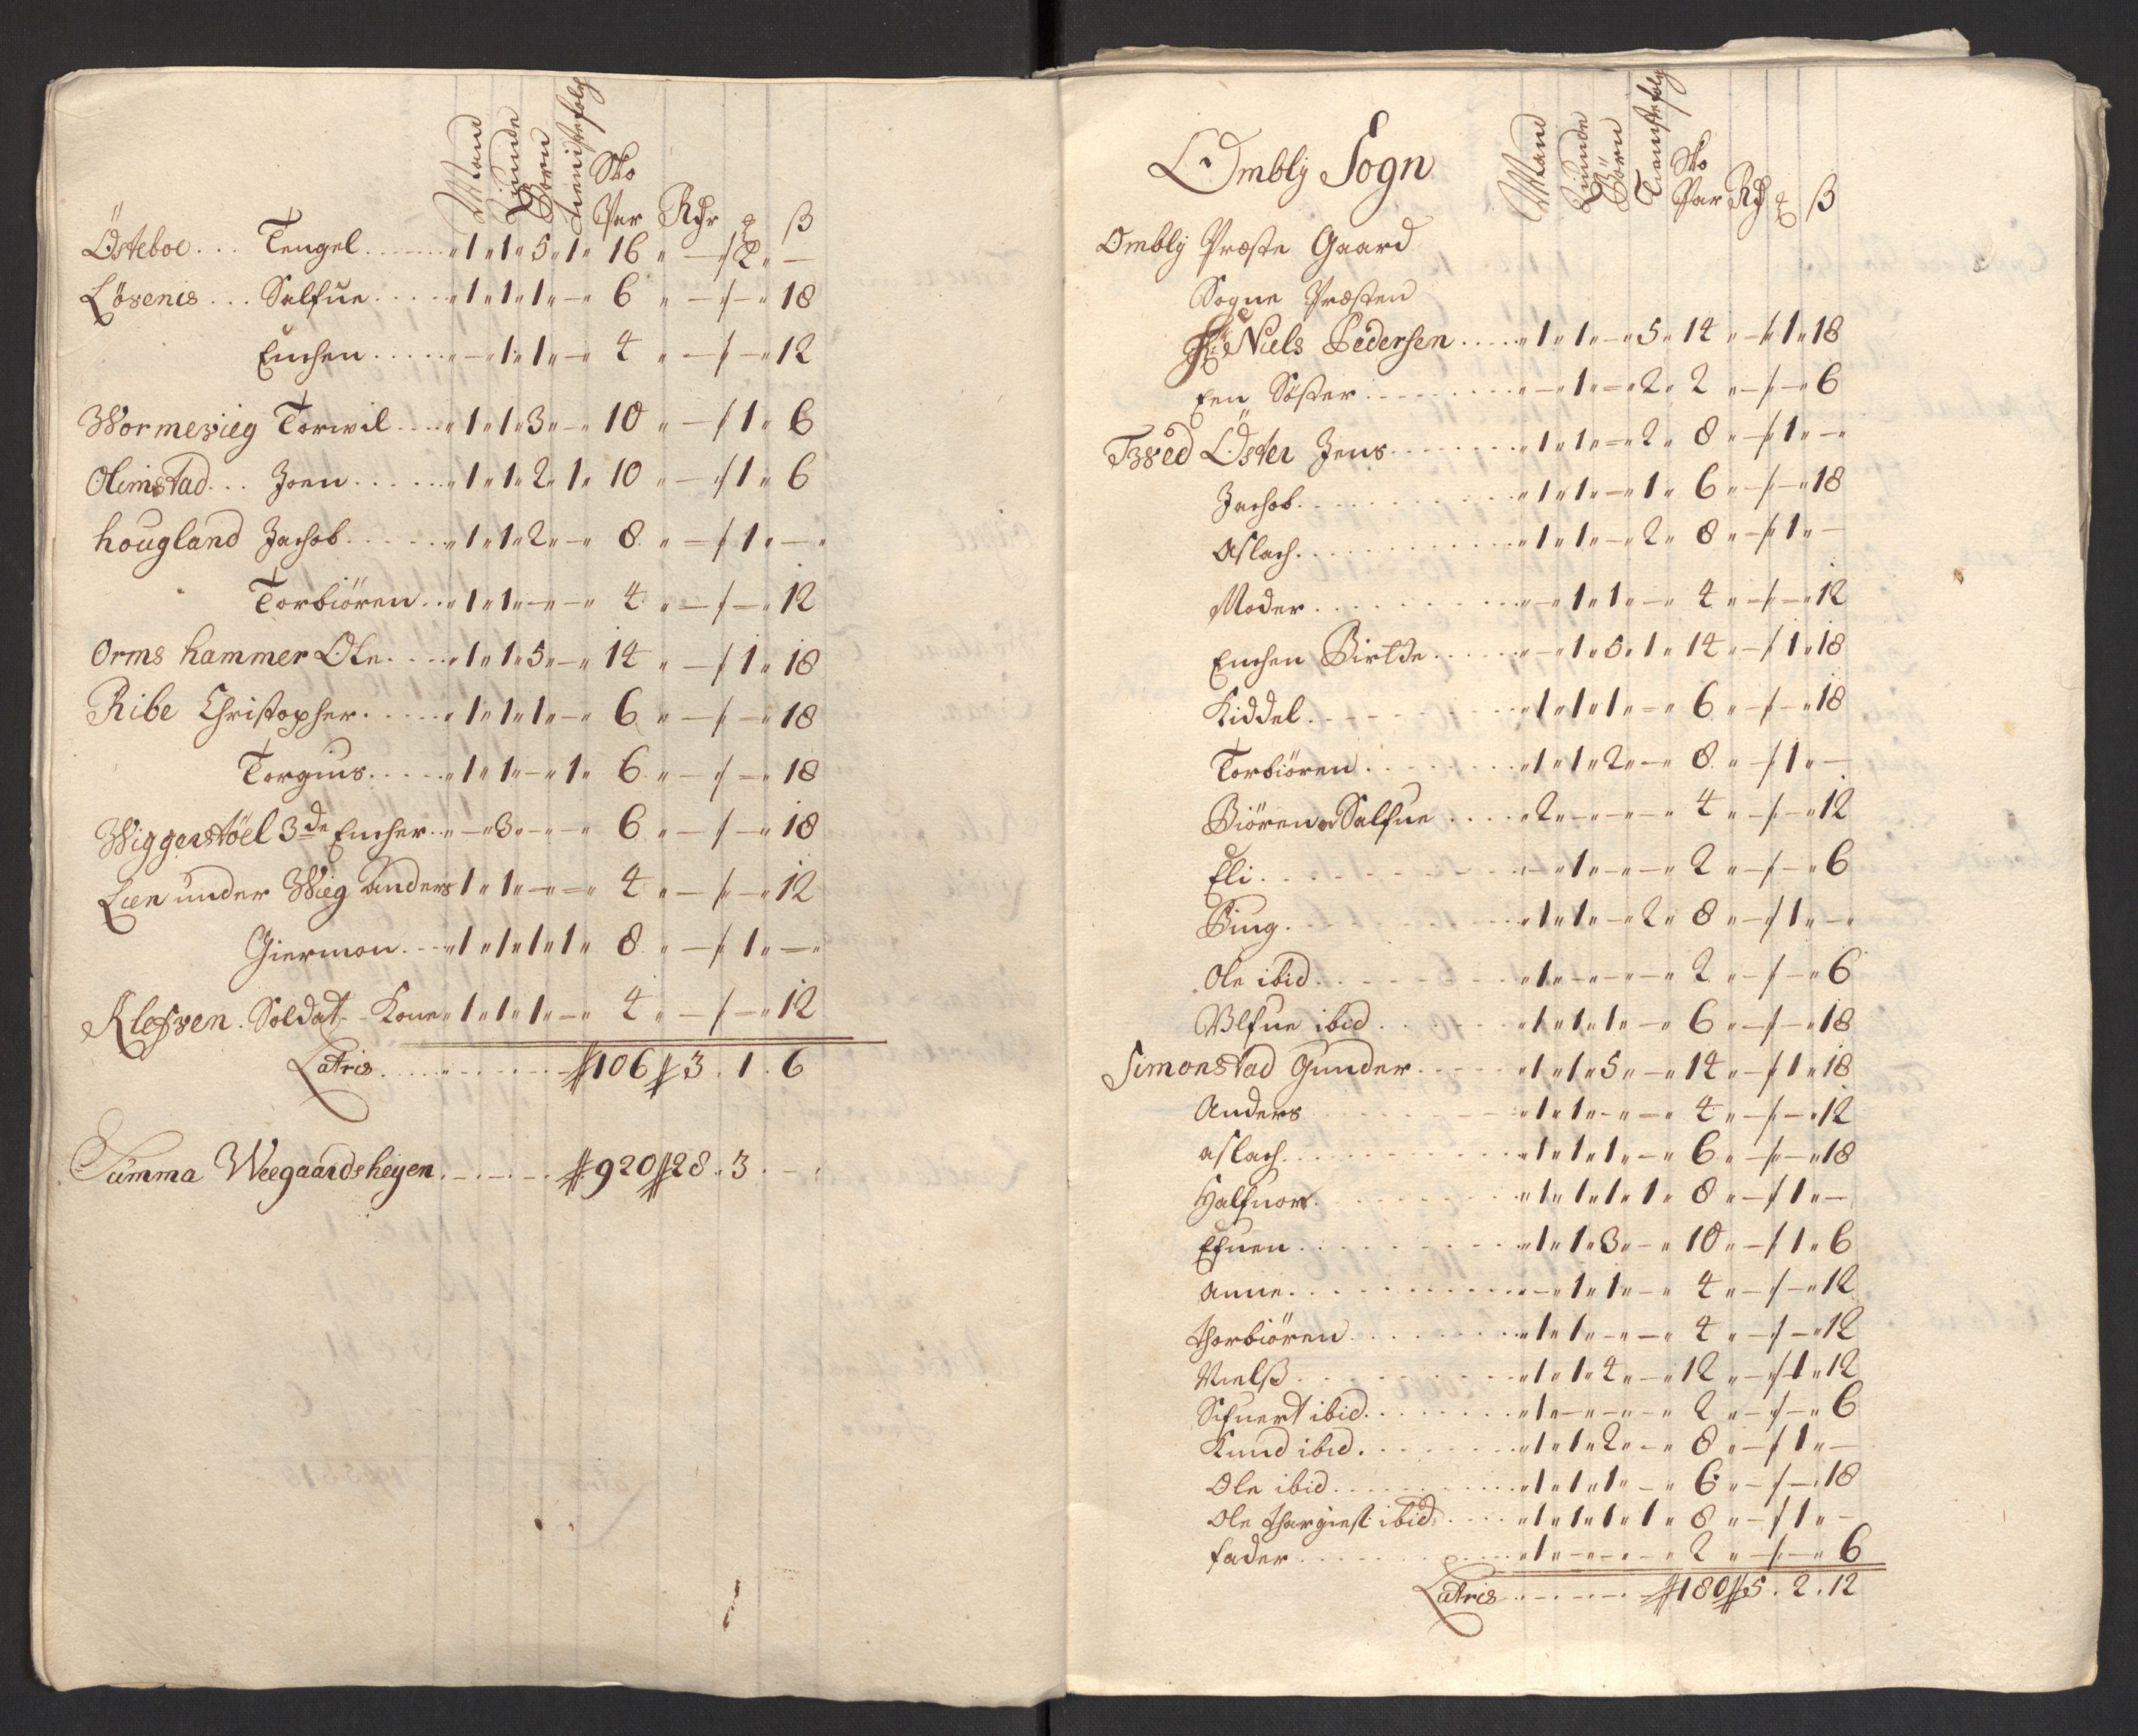 Mand Qvinde Børn Tienistefolch Sko Par Rdr ℔ β
Østeboe... Tengel...... 1 " 1 " 5 " 1 " 16 " — / 2 " —
Løvenes... Salfue..... 1 " 1 " 1 " — " 6 " — / — " 18
Enchen..... — " 1 " 1 " — " 4 " — / — " 12
Wormevieg Torvil.... 1 " 1 " 3 " — " 10 " — / 1 " 6
Olimstad... Joen..... 1 " 1 " 2 " 1 " 10 " — / 1 " 6
hougland Jachob..... 1 " 1 " 2 " — " 8 " — / 1 " —
Torbiøren.. 1 " 1 " — " — " 4 " — / — " 12
Orms hammer Ole.... 1 " 1 " 5 " — " 14 " — / 1 " 18
Ribe Christopher..... 1 " 1 " 1 " — " 6 " — / — " 18
Torgius..... 1 " 1 " — " 1 " 6 " — / — " 18
Wiggerstøel 3de Encher.. — " 3 " — " — " 6 " — / — " 18
Lien under Wieg Anders 1 " 1 " — " — " 4 " — / — " 12
Giermon... 1 " 1 " 1 " 1 " 8 " — / 1 " —
Klefven. Soldat - Kone " 1 " 1 " 1 " — " 4 " — / — " 12
Latris........ 106 // 3 . 1 . 6
Summa Weegaardsheyen....... 920 // 28 . 3 . —
Mand Qvinde Børn Tienistefolch Sko Par Rd ℔ β
Omblj Sogn
Omblj Præste Gaard
Sogne Præsten
Hr Niels Pedersen.... 1 " 1 " — " 5 " 14 " — / 1 " 18
Een Søster........ — " 1 " — " 2 " 2 " — / — " 6
Tved Øster Jens....... 1 " 1 " — " 2 " 8 " — / 1 " —
Jachob......... 1 " 1 " — " 1 " 6 " — / — " 18
Aslach......... 1 " 1 " — " 2 " 8 " — / 1 " —
Moder......... — " 1 " 1 " — " 4 " — / — " 12
Enchen Birtde..... — " 1 " 5 " 1 " 14 " — / 1 " 18
Kiddel........ 1 " 1 " 1 " — " 6 " — / — " 18
Torbiøren....... 1 " 1 " 2 " — " 8 " — / 1 " —
Biøren Salfue.... 2 " — " — " — " 4 " — / — " 12
Eli......... — " 1 " — " — " 2 " — / — " 6
Ping......... 1 " 1 " — " 2 " 8 " — / 1 " —
Ole ibid....... 1 " — " — " — " 2 " — / — " 6
Ulfue ibid...... 1 " 1 " 1 " — " 6 " — / — " 18
Simonstad Gunder..... 1 " 1 " 5 " — " 14 " — / 1 " 18
Anders ....... 1 " 1 " — " — " 4 " — / — " 12
aslach......... 1 " 1 " 1 " — " 6 " — / — " 18
Halfuor........ 1 " 1 " 1 " 1 " 8 " — / 1 " —
Efuen......... 1 " 1 " 3 " — " 10 " — / 1 " 6
Anne......... — " 1 " 1 " — " 4 " — / — " 12
Thorbiøren....... 1 " 1 " — " — " 4 " — / — " 12
Nielß......... 1 " 1 " 4 " — " 12 " — / 1 " 12
Sifuert ibid...... 1 " — " — " — " 2 " — / — " 6
Knud ibid....... 1 " 1 " 2 " — " 8 " — / 1 " —
Ole ibid........ 1 " 1 " 1 " — " 6 " — / — " 18
Ole Thargiesß: ibid.... 1 " 1 " 1 " 1 " 8 " — / 1 " —
fader......... 1 " — " — " — " 2 " — / — " 6
Latris....... 180 // 5 . 2 . 12